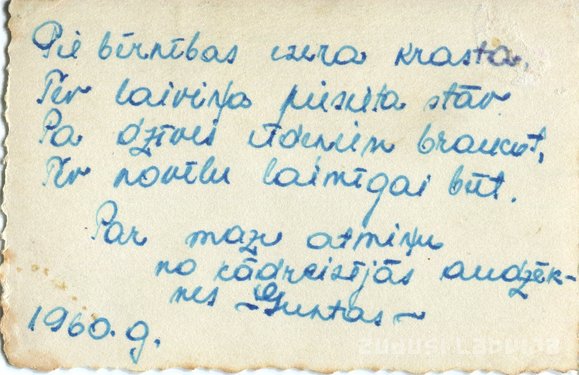 Pie bērnības ezera krasta,
Tev laiviņa piesieta stāv.
Pa dzīves ūdeņiem braucot,
Tev novēlu laimīgai būt.
Par mazu atmiņu
no kādreizējās audzēk-
nes ~Guntas~
1960. g.
zudusilatvija